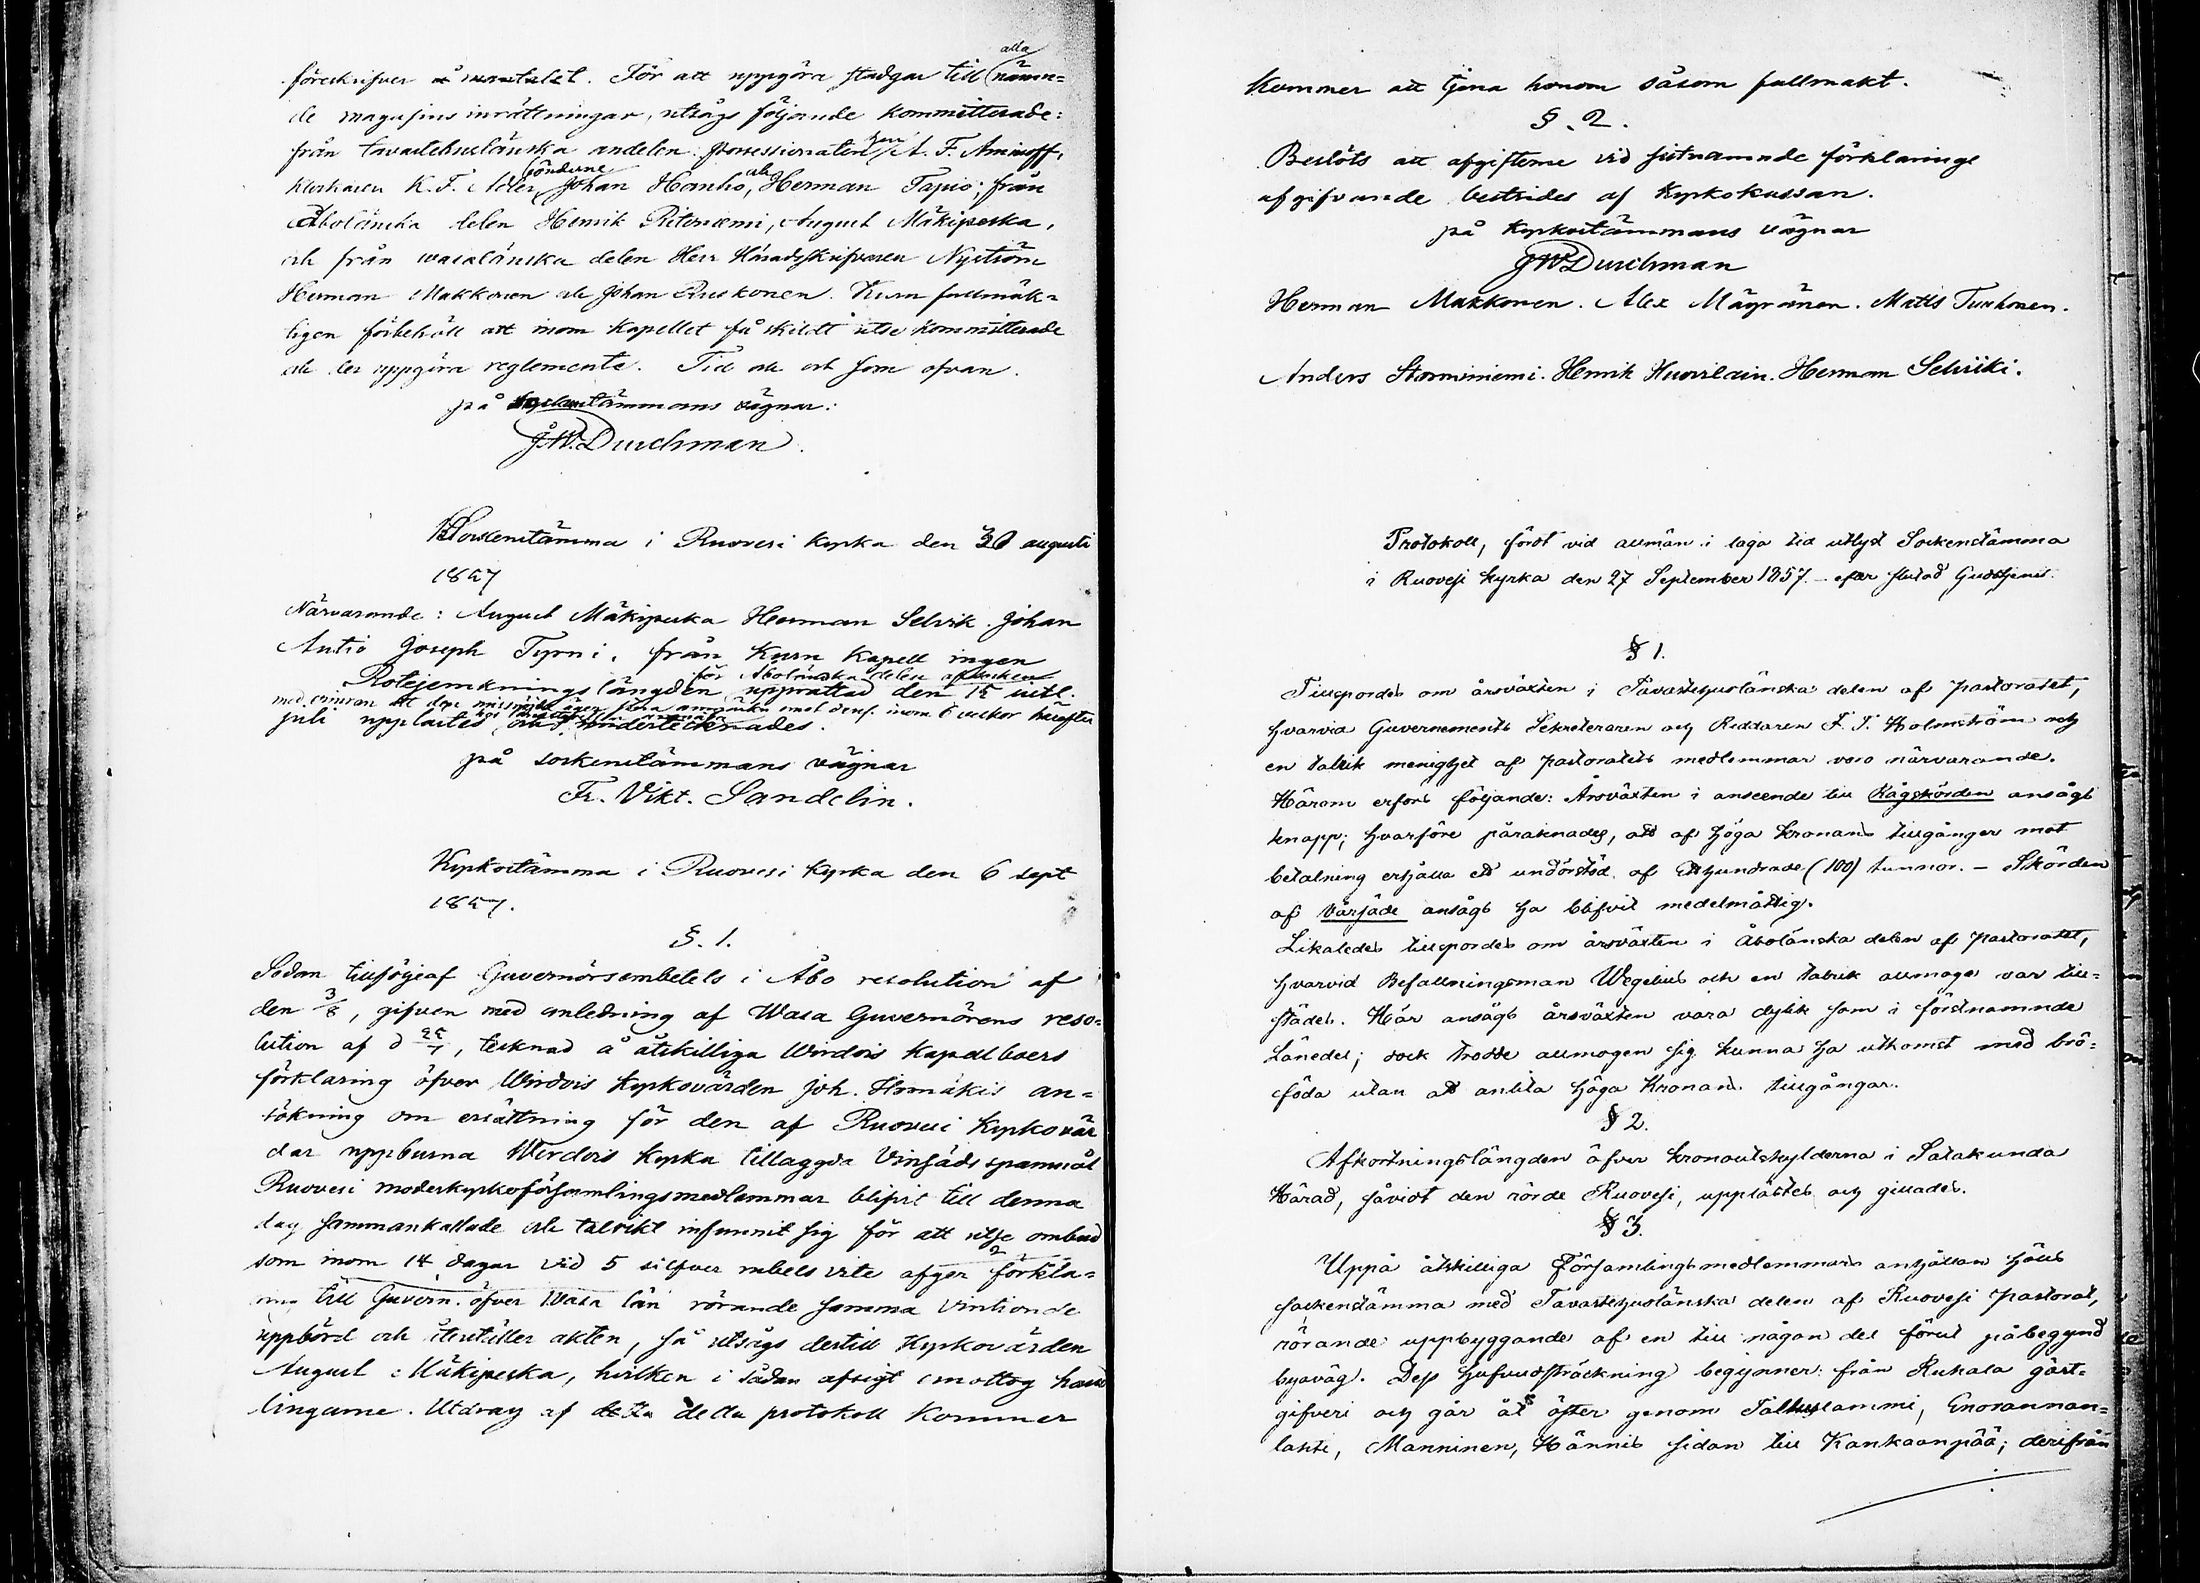 alla
föreskrifver å mantalet. För att uppgöra stadgar till nämn=
de magasins inrättningar, utsågs följande kommitterade:
från tavastehuslänska andelen possessionaten herr A. F. Aminoff,
klockaren K. F. Adler, bönderne Johan Hanho, och Herman Tapio; från
Åbolänska delen Henrik Riteniemi, August Mäkipeska,
och från wasalänska delen Herr Häradsskrifvaren Nyström
Herman Makkonen och Johan Ruskonen. Kuru fullmäk=
tigen förbehöll att inom kapellet få skildt utse kommitterade
och der uppgöra reglemente. Tid och ort som ofvan.
på sockenstämmans vägnar:
J.W. Durchman.
Sockenstämma i Ruovesi kyrka den 30 augusti
1857
Närvarande: August Mäkipeska Herman Selvik. Johan
Antio Joseph Tyrni, från Kuru Kapell ingen
för Åbolänska delen af socknen
Rotejemkningslängden upprättad den 15 sistl.
med erinran att dess missnöjde ägen söka ansöka emot dens. inom 6 veckor härefter
juli upplästes och undertecknades.
på sockenstämmans vägnar
Fr. Vikt. Sandelin.
Kyrkostämma i Ruovesi kyrka den 6 sept
1857.
§. 1.
Sedan tillföljeaf Guvernörsembetets i Åbo resolution af
den 3/8, gifven med anledning af Wasa Guvernörens reso=
lution af d 25/7, tecknad å åtskilliga Wirdois kapellboers
förklaring öfver Wirdois kyrkovärden Joh. Himäkis an=
sökning om ersättning för den af Ruovesi kyrkovär
dar uppburna Wirdois kyrka tillaggda Vinsäds spannmål
Ruovesi moderkyrkoförsamlingsmedlemmar blifvit till denna
dag sammankallade och talrikt infunnit sig för att utse ombud
som inom 14 dagar vid 5 silfver rubels vite afger förkla=
ring till Guvern. öfver Wasa län rörande samma vintionde
uppbörd och återställer akten, så utsågs dertill Kyrkovärden
August Mäkipeska, hvilken i sådan afsigt emottog hand
lingarne. Utdrag af detta protokoll kommer
kommer att tjena honom såsom fullmakt.
§. 2.
Beslöts att afgifterne vid sistnämnde förklarings
afgifvande bestrides af Kyrkokassan.
på Kyrkostämmans vägnar
JWDurchman
Herman Makkonen. Alex Mägränen. Matts Turkonen.
Anders Storminiemi. Henrik Huovilain. Herman Selviiki.
Protokoll, fördt vid allmän i laga tid utlyst Sockenstämma
i Ruovesi kyrka den 27 September 1857. – efter slutad Gudstjenst.
§ 1.
Tillspordes om årsväxten i Tavastehuslänska delen af pastoratet,
hvarvid Guvernements Sekreteraren och Riddaren F. T. Holmström och
en talrik menighet af pastoratets medlemmar voro närvarande.
Härom erfors följande: Årsväxten i anseende till Rågskörden ansågs
knapp; hvarföre påräknades, att af höga kronans tillgångar mot
betalning erhålla ett understöd af Etthundrade (100) tunnor. – Skörden
af Vårsäde ansågs ha blifvit medelmåttig.
Likaledes tillspordes om årsväxten i Åbolänska delen af pastoratet,
hvarvid Befallningsman Wegelius och en talrik allmoge var till=
städes. Här ansågs årsväxten vara dylik som i förstnämnde
Länedel; dock trodde allmogen sig kunna ha utkomst med brö=
föda utan att anlita höga Kronans tillgångar.
§ 2.
Afkortningslängden öfver kronoutskylderna i Satakunda
Härad, såvidt den rörde Ruovesi, upplästes och gillades.
§ 3.
Uppå åtskilliga Församlingsmedlemmars anhållan hölls
sockenstämma med Tavastehuslänska delen af Ruovesi pastorat,
rörande uppbyggande af en till någon del förut påbegynd
byaväg. Dess hufvudsträckning begynner: från Ruhala gäst=
gifveri och går åt öster genom Talluslammi, Enorannan=
lahti, Manninen, Hännis sidan till Kankaanpää; derifrån